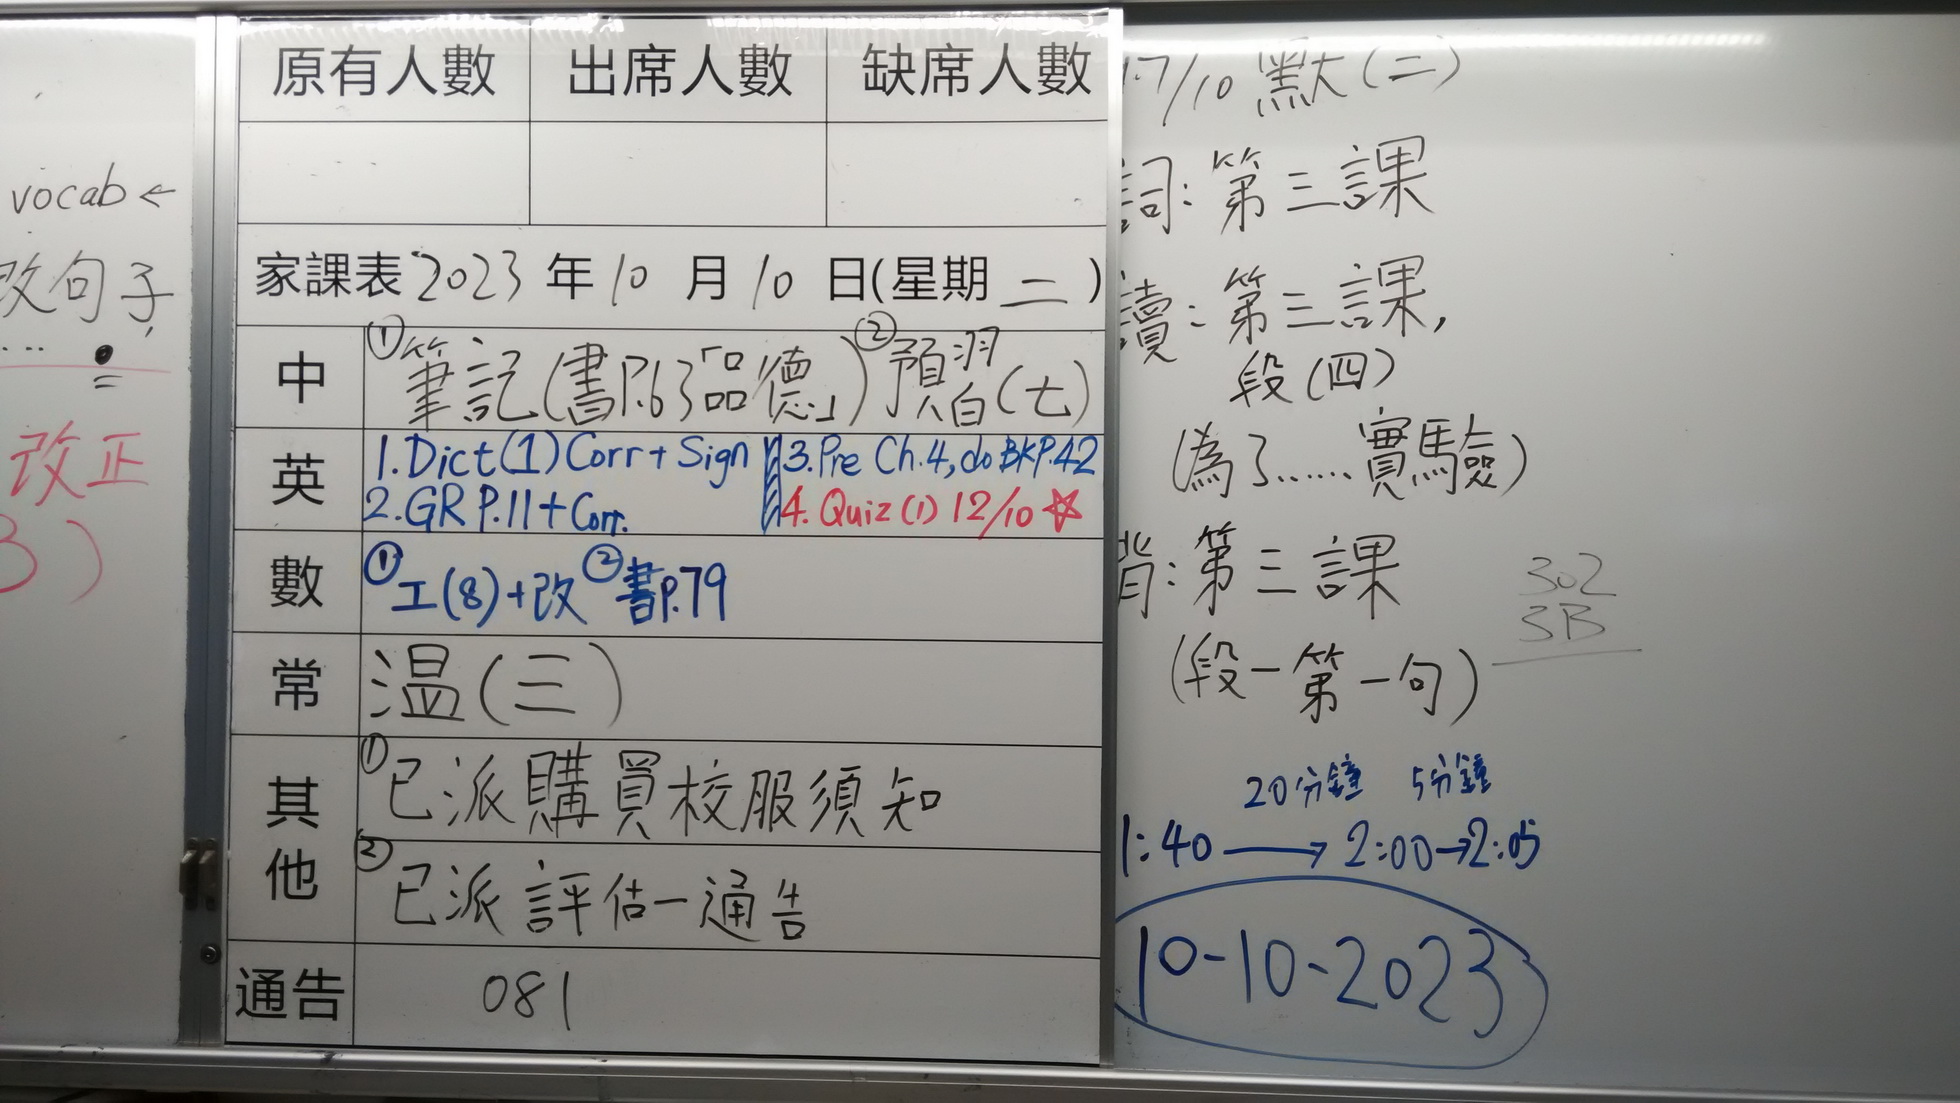 vocab ←
改句子
…… .
改正
3)
原有人數 出席人數 缺席人數
家課表 2023 年 10 月 10 日(星期 二 )
中 ①筆記(書P.63「品德」) ②預習(七)
英 1. Dict(1) Corr + Sign 3. Pre Ch.4, do BKP.42
2. GR P.11 + Corr. 4. Quiz (1) 12/10 ☆
數 ①工(8)+改 ②書P.79
常 溫(三)
其他 ①已派購買校服須知
②已派評估一通告
通告 081
17/10 默(二)
詞: 第三課
讀: 第三課,
段(四)
(為了……實驗)
背: 第三課
(段一第一句)
302
3B
20分鐘 5分鐘
1:40 → 2:00 → 2:05
10-10-2023